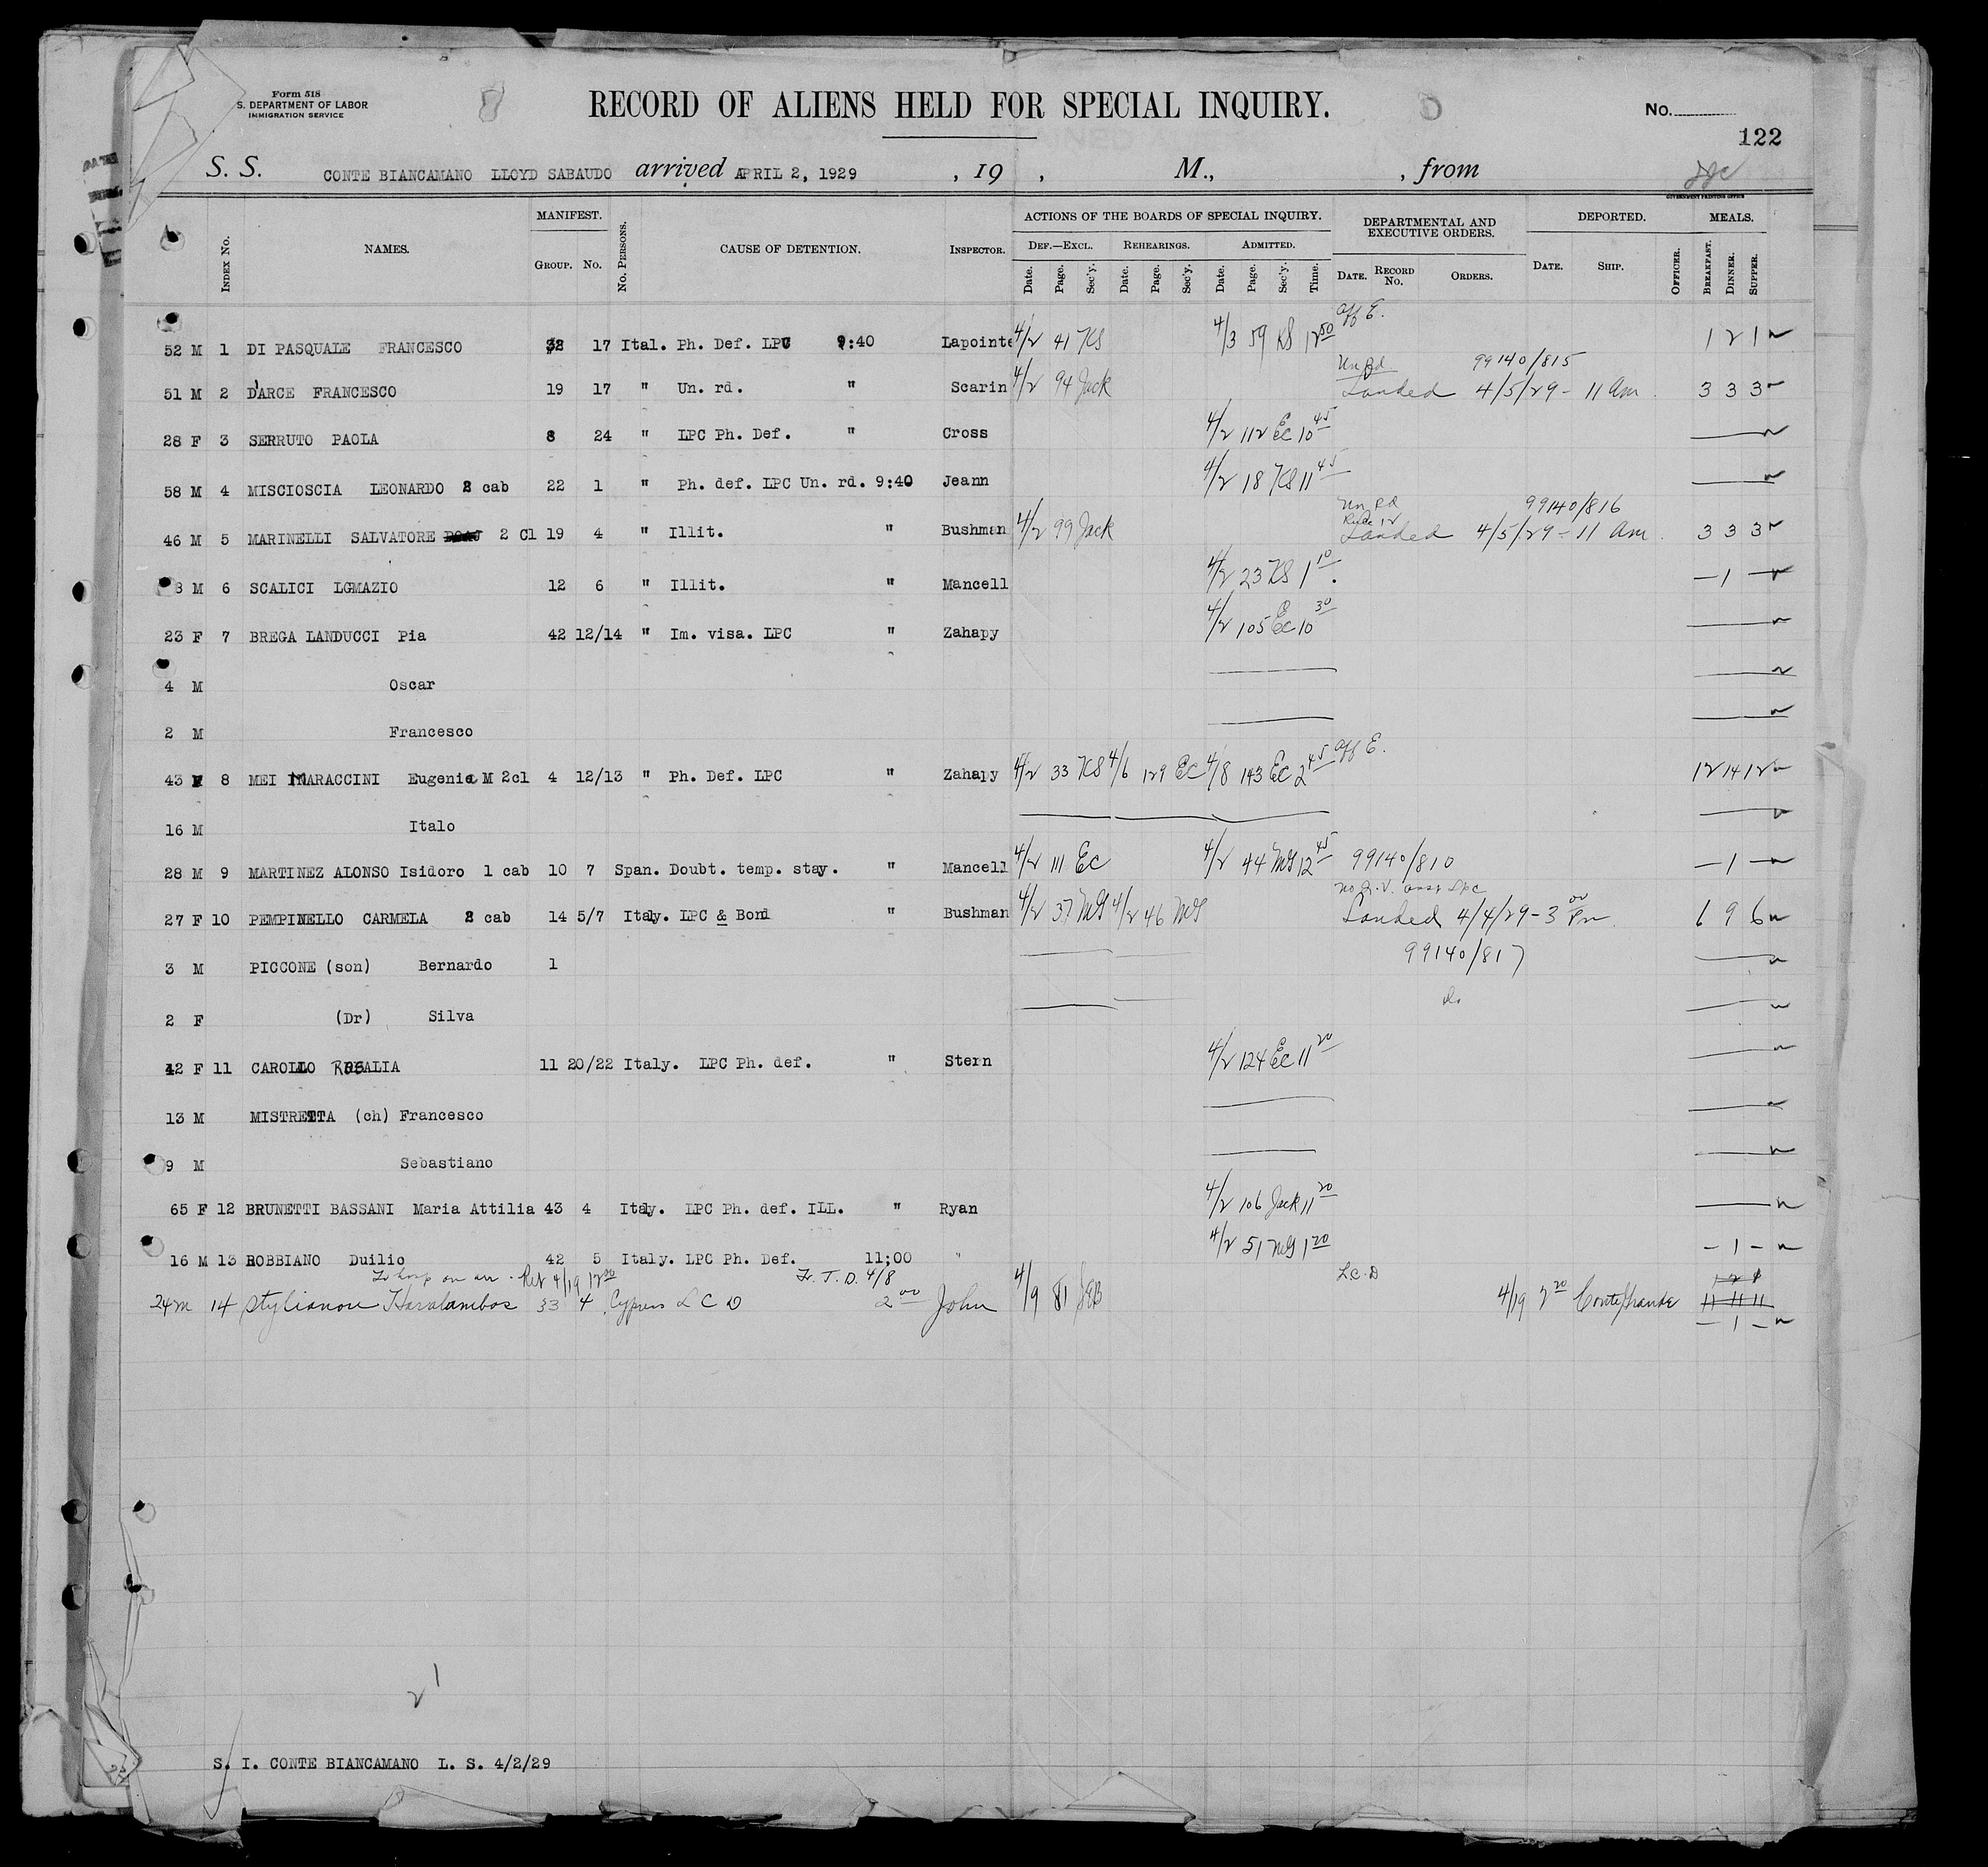 Form 518
S. DEPARTMENT OF LABOR
IMMIGRATION SERVICE
RECORD OF ALIENS HELD FOR SPECIAL INQUIRY.
No.
122
S. S. CONTE BIANCAMANO LLOYD SABAUDO arrived APRIL 2, 1929 , 19 , M., , from
GOVERNMENT PRINTING OFFICE
Index No. NAMES. MANIFEST. Group. No. No. Persons. CAUSE OF DETENTION. Inspector. ACTIONS OF THE BOARDS OF SPECIAL INQUIRY. Def.—Excl. Rehearings. Admitted. Date. Page. Sec'y. Date. Page. Sec'y. Date. Page. Sec'y. Time. DEPARTMENTAL AND EXECUTIVE ORDERS. Date. Record No. Orders. DEPORTED. Date. Ship. Officer. MEALS. Breakfast. Dinner. Supper.
52 M 1 DI PASQUALE FRANCESCO 32 17 Ital. Ph. Def. LPC 9:40 Lapointe 4/2 41 KS 4/3 59 KS 12 50 1 2 1
Un Rd 99140/815
51 M 2 D'ARCE FRANCESCO 19 17 " Un. rd. " Scarin 4/2 94 Jack Landed 4/5/29 - 11 am. 3 3 3
28 F 3 SERRUTO PAOLA 8 24 " LPC Ph. Def. " Cross 4/2 112 EC 10 45
58 M 4 MISCIOSCIA LEONARDO 2 cab 22 1 " Ph. def. LPC Un. rd. 9:40 Jeann 4/2 18 KS 11 45
Un Rd 99140/816
46 M 5 MARINELLI SALVATORE 2 Cl 19 4 " Illit. " Bushman 4/2 99 Jack Landed 4/5/29 - 11 am. 3 3 3
8 M 6 SCALICI LGMAZIO 12 6 " Illit. " Mancell 4/2 23 KS 1 10 — 1 —
23 F 7 BREGA LANDUCCI Pia 42 12/14 " Im. visa. LPC " Zahapy 4/2 105 EC 10 30
4 M Oscar
2 M Francesco
43 F 8 MEI MARACCINI Eugenia M 2cl 4 12/13 " Ph. Def. LPC " Zahapy 4/2 33 KS 4/6 129 EC 4/8 143 EC 2 45 12 14 12
16 M Italo
28 M 9 MARTINEZ ALONSO Isidoro 1 cab 10 7 Span. Doubt. temp. stay. " Mancell 4/2 111 EC 4/2 44 MG 12 45 99140/810 — 1 —
27 F 10 PEMPINELLO CARMELA 2 cab 14 5/7 Italy. LPC & Bond " Bushman 4/2 37 MG 4/2 46 MG Landed 4/4/29 - 3 00 Pm. 6 9 6
3 M PICCONE (son) Bernardo 1 99140/817
2 F (Dr) Silva do
42 F 11 CAROLLO ROSALIA 11 20/22 Italy. LPC Ph. def. " Stern 4/2 124 EC 11 20
13 M MISTRETTA (ch) Francesco
9 M Sebastiano
65 F 12 BRUNETTI BASSANI Maria Attilia 43 4 Italy. LPC Ph. def. ILL. " Ryan 4/2 106 Jack 11 20
16 M 13 ROBBIANO Duilio 42 5 Italy. LPC Ph. Def. 11;00 " 4/2 51 MG 1 20 - 1 -
To hosp on arr. Ret 4/19 12 00 Fr. T. D. 4/8 L.C.D
24 m 14 Stylianou Haralambos 33 4 Cyprus L C D 2 00 John 4/9 81 JEB 4/19 Conte Grande 11 11 11
— 1 —
S. I. CONTE BIANCAMANO L. S. 4/2/29